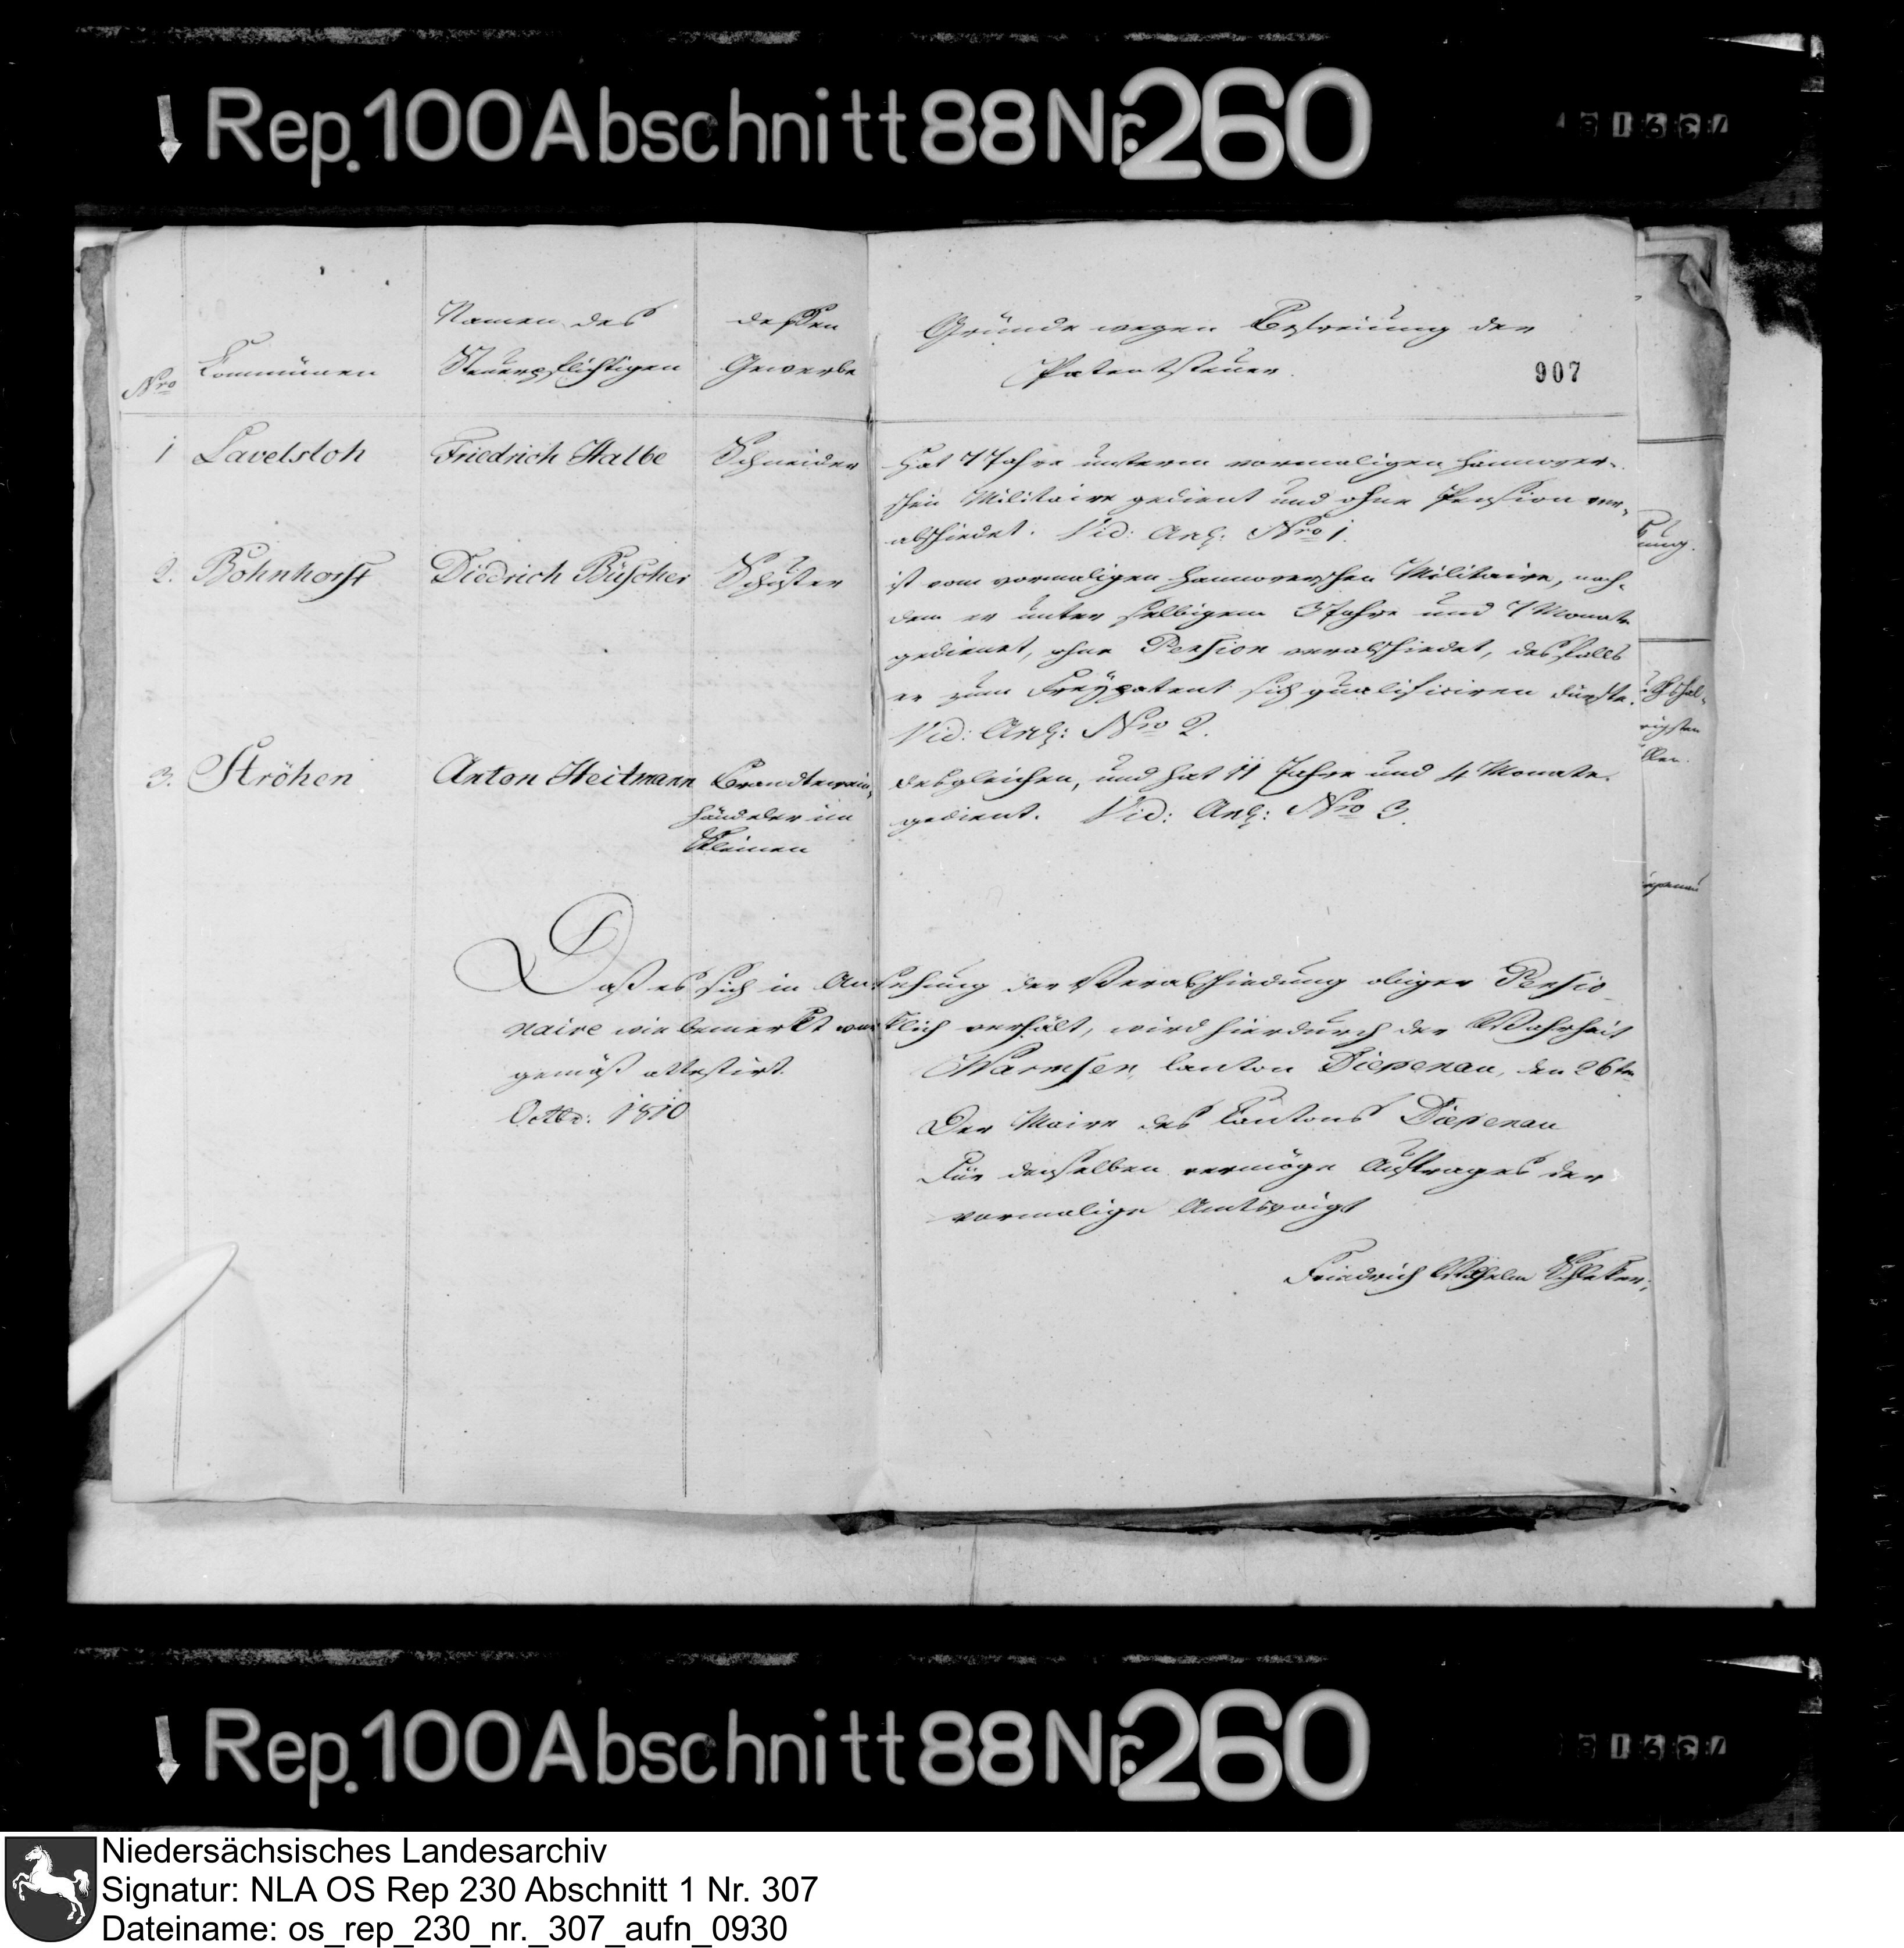 Rep. 100 Abschnitt 88 Nr. 260
Nro
Communen
Namen des
Steuerpflichtigen
dessen
Gewerbe
Gründe wegen Befreiung der
Patentsteuer.
907
1 Lavelsloh Friedrich Halbe Schneider
Hat 7 Jahre unterm vormaligen Hannover-
schen Militaire gedient und ohne Pension ver-
abschiedet. Vid: Anl: Nro 1.
2. Bohnhorst Diedrich Büscher Schuster
ist vom vormaligen Hannoverschen Militaire, nach-
dem er unter selbigem 3 Jahre und 7 Monate
gedienet, ohne Pension verabschiedet, desfalls
er zum Freypatent sich qualificiren dürfte.
Vid: Anl: Nro 2.
3. Ströhen Anton Heitmann Brandtewein-
händeler im
Kleinen
desgleichen, und hat 11 Jahre und 4 Monate
gedient. Vid: Anl: Nro 3.
Daß es sich in Ansehung der Verabschiedung obiger Pensio-
naire wie bemerkt wirklich verhält, wird hierdurch der Wahrheit
gemäß attestirt. Warmsen, Canton Diepenau, den 26ten
Octbr: 1810
Der Maire des Cantons Diepenau
Für denselben vermöge Auftrages der
vormalige Amtsvoigt
Friedrich Wilhelm
Rep. 100 Abschnitt 88 Nr. 260
Niedersächsisches Landesarchiv
Signatur: NLA OS Rep 230 Abschnitt 1 Nr. 307
Dateiname: os_rep_230_nr._307_aufn_0930